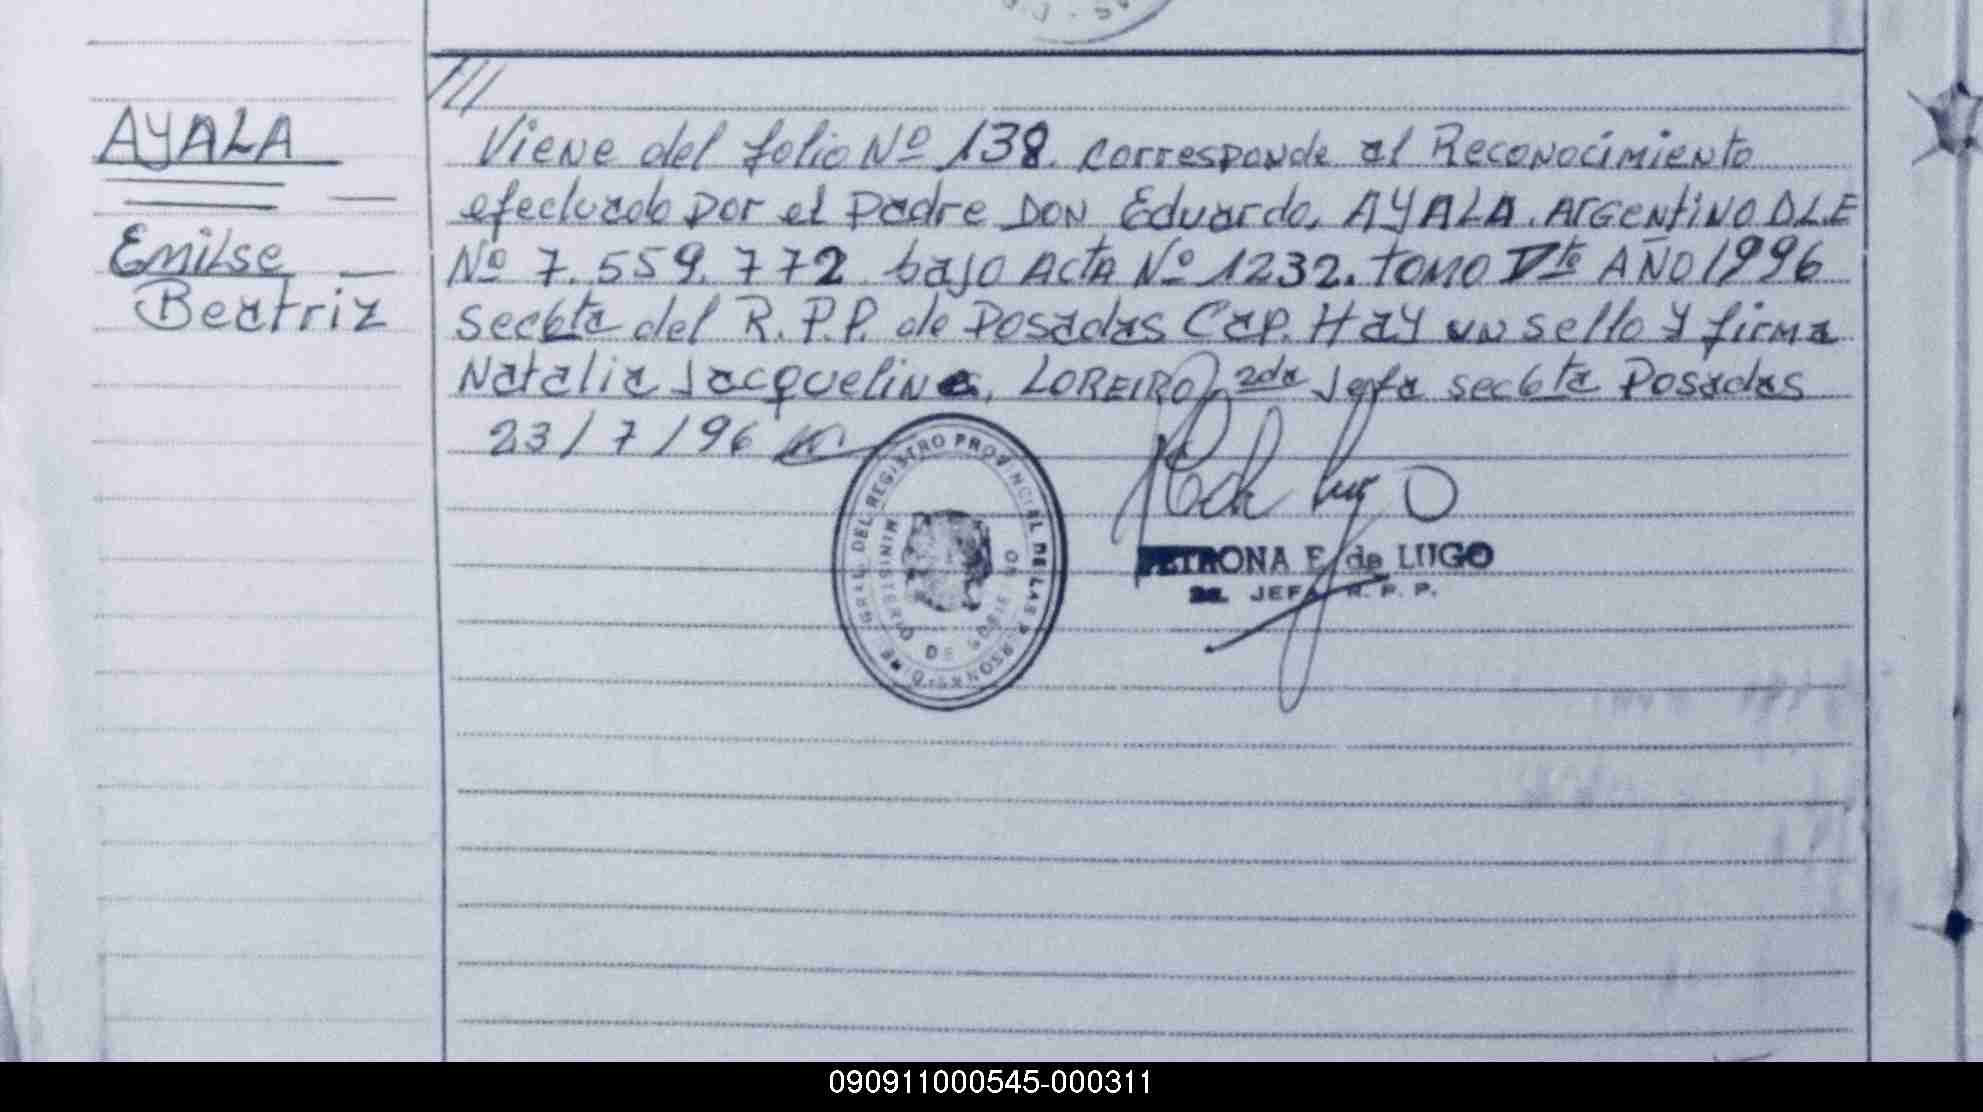 AYALA
Emilse
Beatriz
///
Viene del folio Nº 138. corresponde al Reconocimiento
efectuado por el padre DON Eduardo, AYALA. ArGentiNO D.L.E
Nº 7.559.772 bajo ActA Nº 1232. tomo Vto AÑO 1996
sec6ta del R.P.P. de Posadas Cap. Hay un sello y firma
Natalia Jacqueline, LOREIRO, 2da Jefa sec6ta Posadas
23/7/96
GRAL. DEL REGISTRO PROVINCIAL DE LAS PERSONAS
MINISTERIO DE GOBIERNO
PETRONA E. de LUGO
2a. JEFA R. P. P.
090911000545-000311